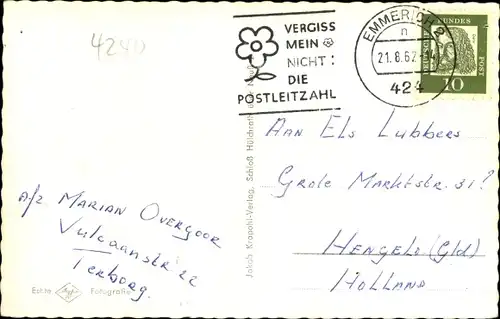 4240
VERGISS
MEIN
NICHT!
DIE
POSTLEITZAHL
EMMERICH 2
n
21.8.62
424
DEUTSCHE BUNDESPOST
10
Aan Els Lubbers
Grote Marktstr. 31?
HENGELO (Gld)
HOLLAND
a/z MARIAN OVERGOOR
Vulcaanstr 22
Terborg.
Jakob Krapohl-Verlag, Schloß Hülchrath
Echte Agfa Fotografie